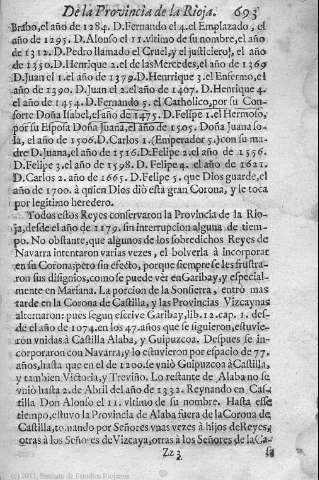 De la Provincia de la Rioja. 693
Brabo, el año de 1284. D. Fernando el 4. el Emplazado, el
año de 1295. D. Alonso el 11. vltimo de su nombre, el año
de 1312. D. Pedro llamado el Cruel, y el justiciero, el año
de 1350. D. Henrique 2. el de las Mercedes, el año de 1369.
D. Juan el 1. el año de 1379. D. Henrique 3. el Enfermo, el
año de 1390. D. Juan el 2. el año de 1407. D. Henrique 4.
el año de 1454. D. Fernando 5. el Catholico, por su Con-
sorte Doña Isabel, el año de 1475. D. Felipe 1. el Hermoso,
por su Esposa Doña Juana, el año de 1505. Doña Juana so-
la, el año de 1506. D. Carlos 1. (Emperador 5.) con su ma-
dre D. Juana, el año de 1516. D. Felipe 2. el año de 1556.
D. Felipe 3. el año de 1598. D. Felipe 4. el año de 1621.
D. Carlos 2. año de 1665. D. Felipe 5. que Dios guarde, el
año de 1700. à quien Dios diò esta gran Corona, y le toca
por legitimo heredero.
Todos estos Reyes conservaron la Provincia de la Rio-
ja, desde el año de 1179. sin interrupcion alguna de tiem-
po. No obstante, que algunos de los sobredichos Reyes de
Navarra intentaron varias veces, el bolverla à incorporar
en su Corona; pero sin efecto, porque siempre se les frustra-
ron sus disignios, como se puede vèr en Garibay, y especial-
mente en Mariana. La porcion de la Sonsierra, entrò mas
tarde en la Corona de Castilla, y las Provincias Vizcaynas
alternaron: pues segun escrive Garibay, lib. 12. cap. 1. des-
de el año de 1074. en los 47. años que se siguieron, estuvie-
ron vnidas à Castilla Alaba, y Guipuzcoa. Despues se in-
corporaron con Navarra, y lo estuvieron por espacio de 77.
años, hasta que en el de 1200. se vniò Guipuzcoa à Castilla,
y tambien Victoria, y Treviño. Lo restante de Alaba no se
vniò hasta 2. de Abril del año de 1332. Reynando en Cas-
tilla Don Alonso el 11. vltimo de su nombre. Hasta esse
tiempo, estuvo la Provincia de Alaba fuera de la Corona de
Castilla, tomando por Señores vnas veces à hijos de Reyes,
otras à los Señores de Vizcaya, otras à los Señores de la Ca-
Zz 3
(c) 2011, Instituto de Estudios Riojanos